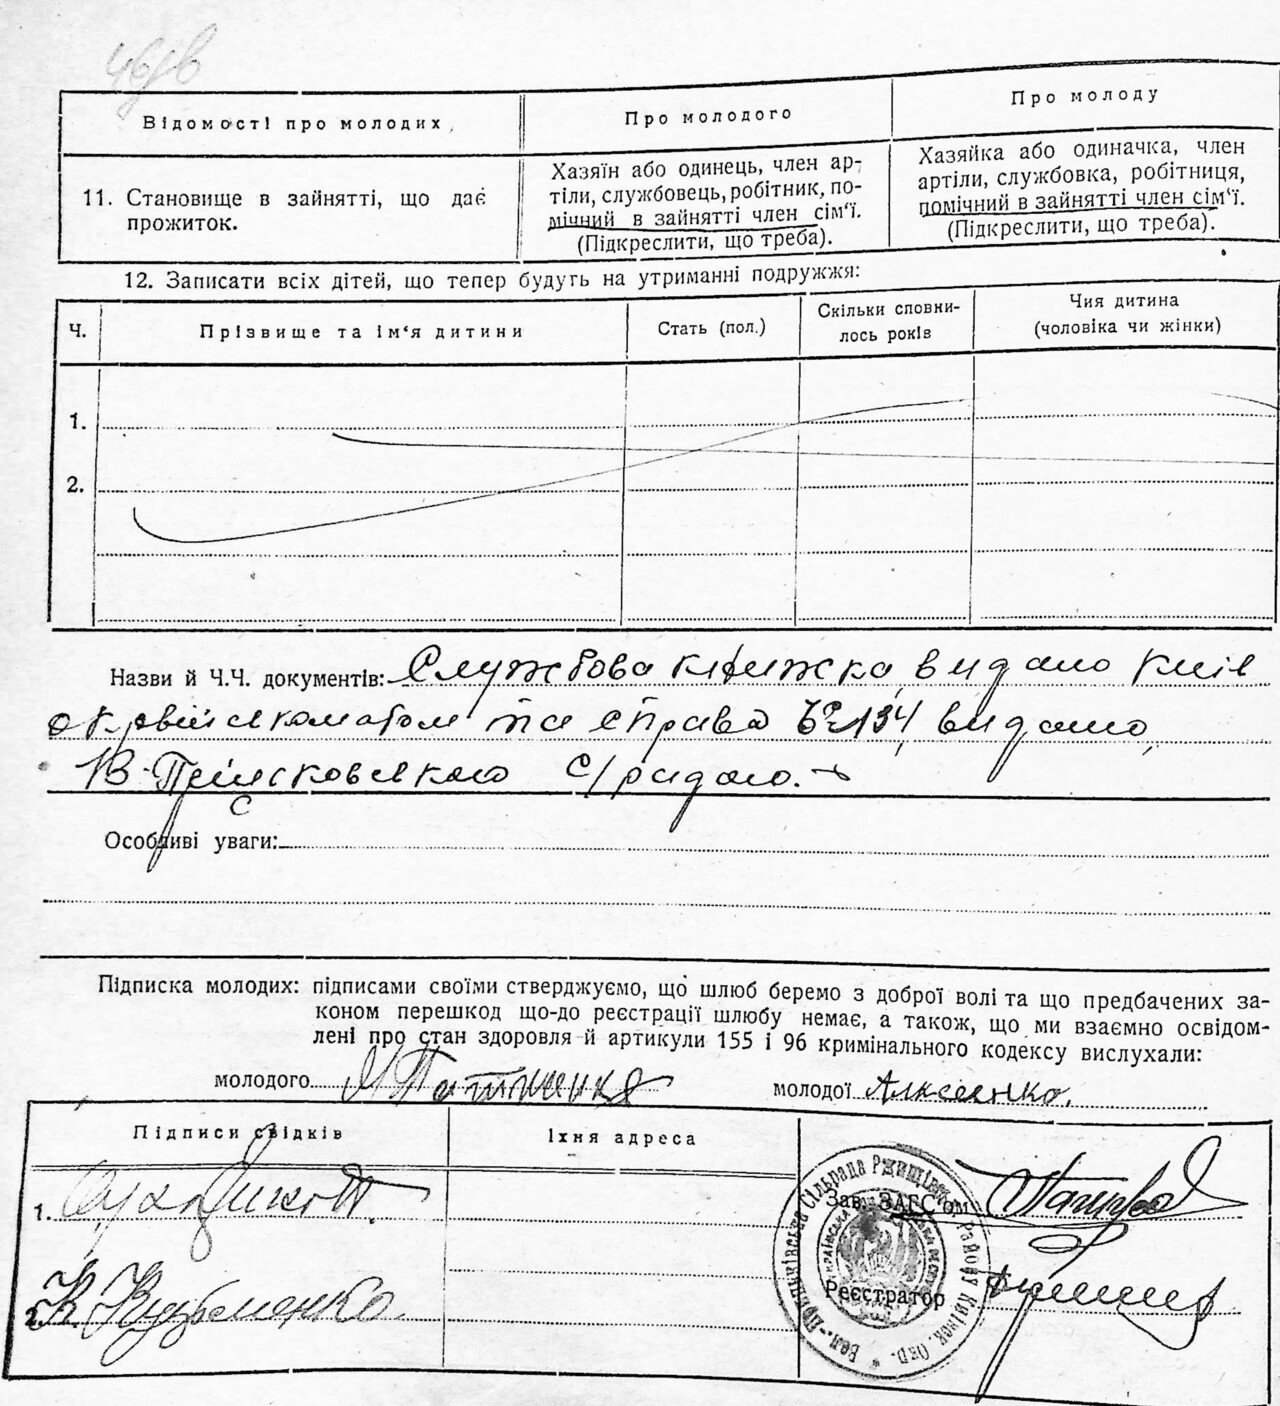 Відомості про молодих.
Про молодого
Про молоду
11. Становище в зайнятті, що дає
прожиток.
Хазяїн або одинець, член ар-
тіли, службовець, робітник, по-
мічний в зайнятті член сім‘ї.
(Підкреслити, що треба).
Хазяйка або одиначка, член
артіли, службовка, робітниця,
помічний в зайнятті член сім‘ї.
(Підкреслити, що треба).
12. Записати всіх дітей, що тепер будуть на утриманні подружжя:
Ч.
Прізвище та ім‘я дитини
Стать (пол.)
Скільки сповни-
лось років
Чия дитина
(чоловіка чи жінки)
1.
2.
Назви й Ч.Ч. документів: Службова книжка, видано Київ
окрвійськоматом та справа № 134, видано
В-Пріцковського с/радою.
Особливі уваги:
Підписка молодих: підписами своїми стверджуємо, що шлюб беремо з доброї волі та що предбачених за-
коном перешкод що-до реєстрації шлюбу немає, а також, що ми взаємно освідом-
лені про стан здоровля й артикули 155 і 96 кримінального кодексу вислухали:
молодого
молодої Алксеенко.
Підписи свідків
Їхня адреса
1.
2. К. Кузьменко.
Зав. ЗАГС‘ом
Реєстратор
Сільрада Ржищівськ. Району Київськ. Окр.